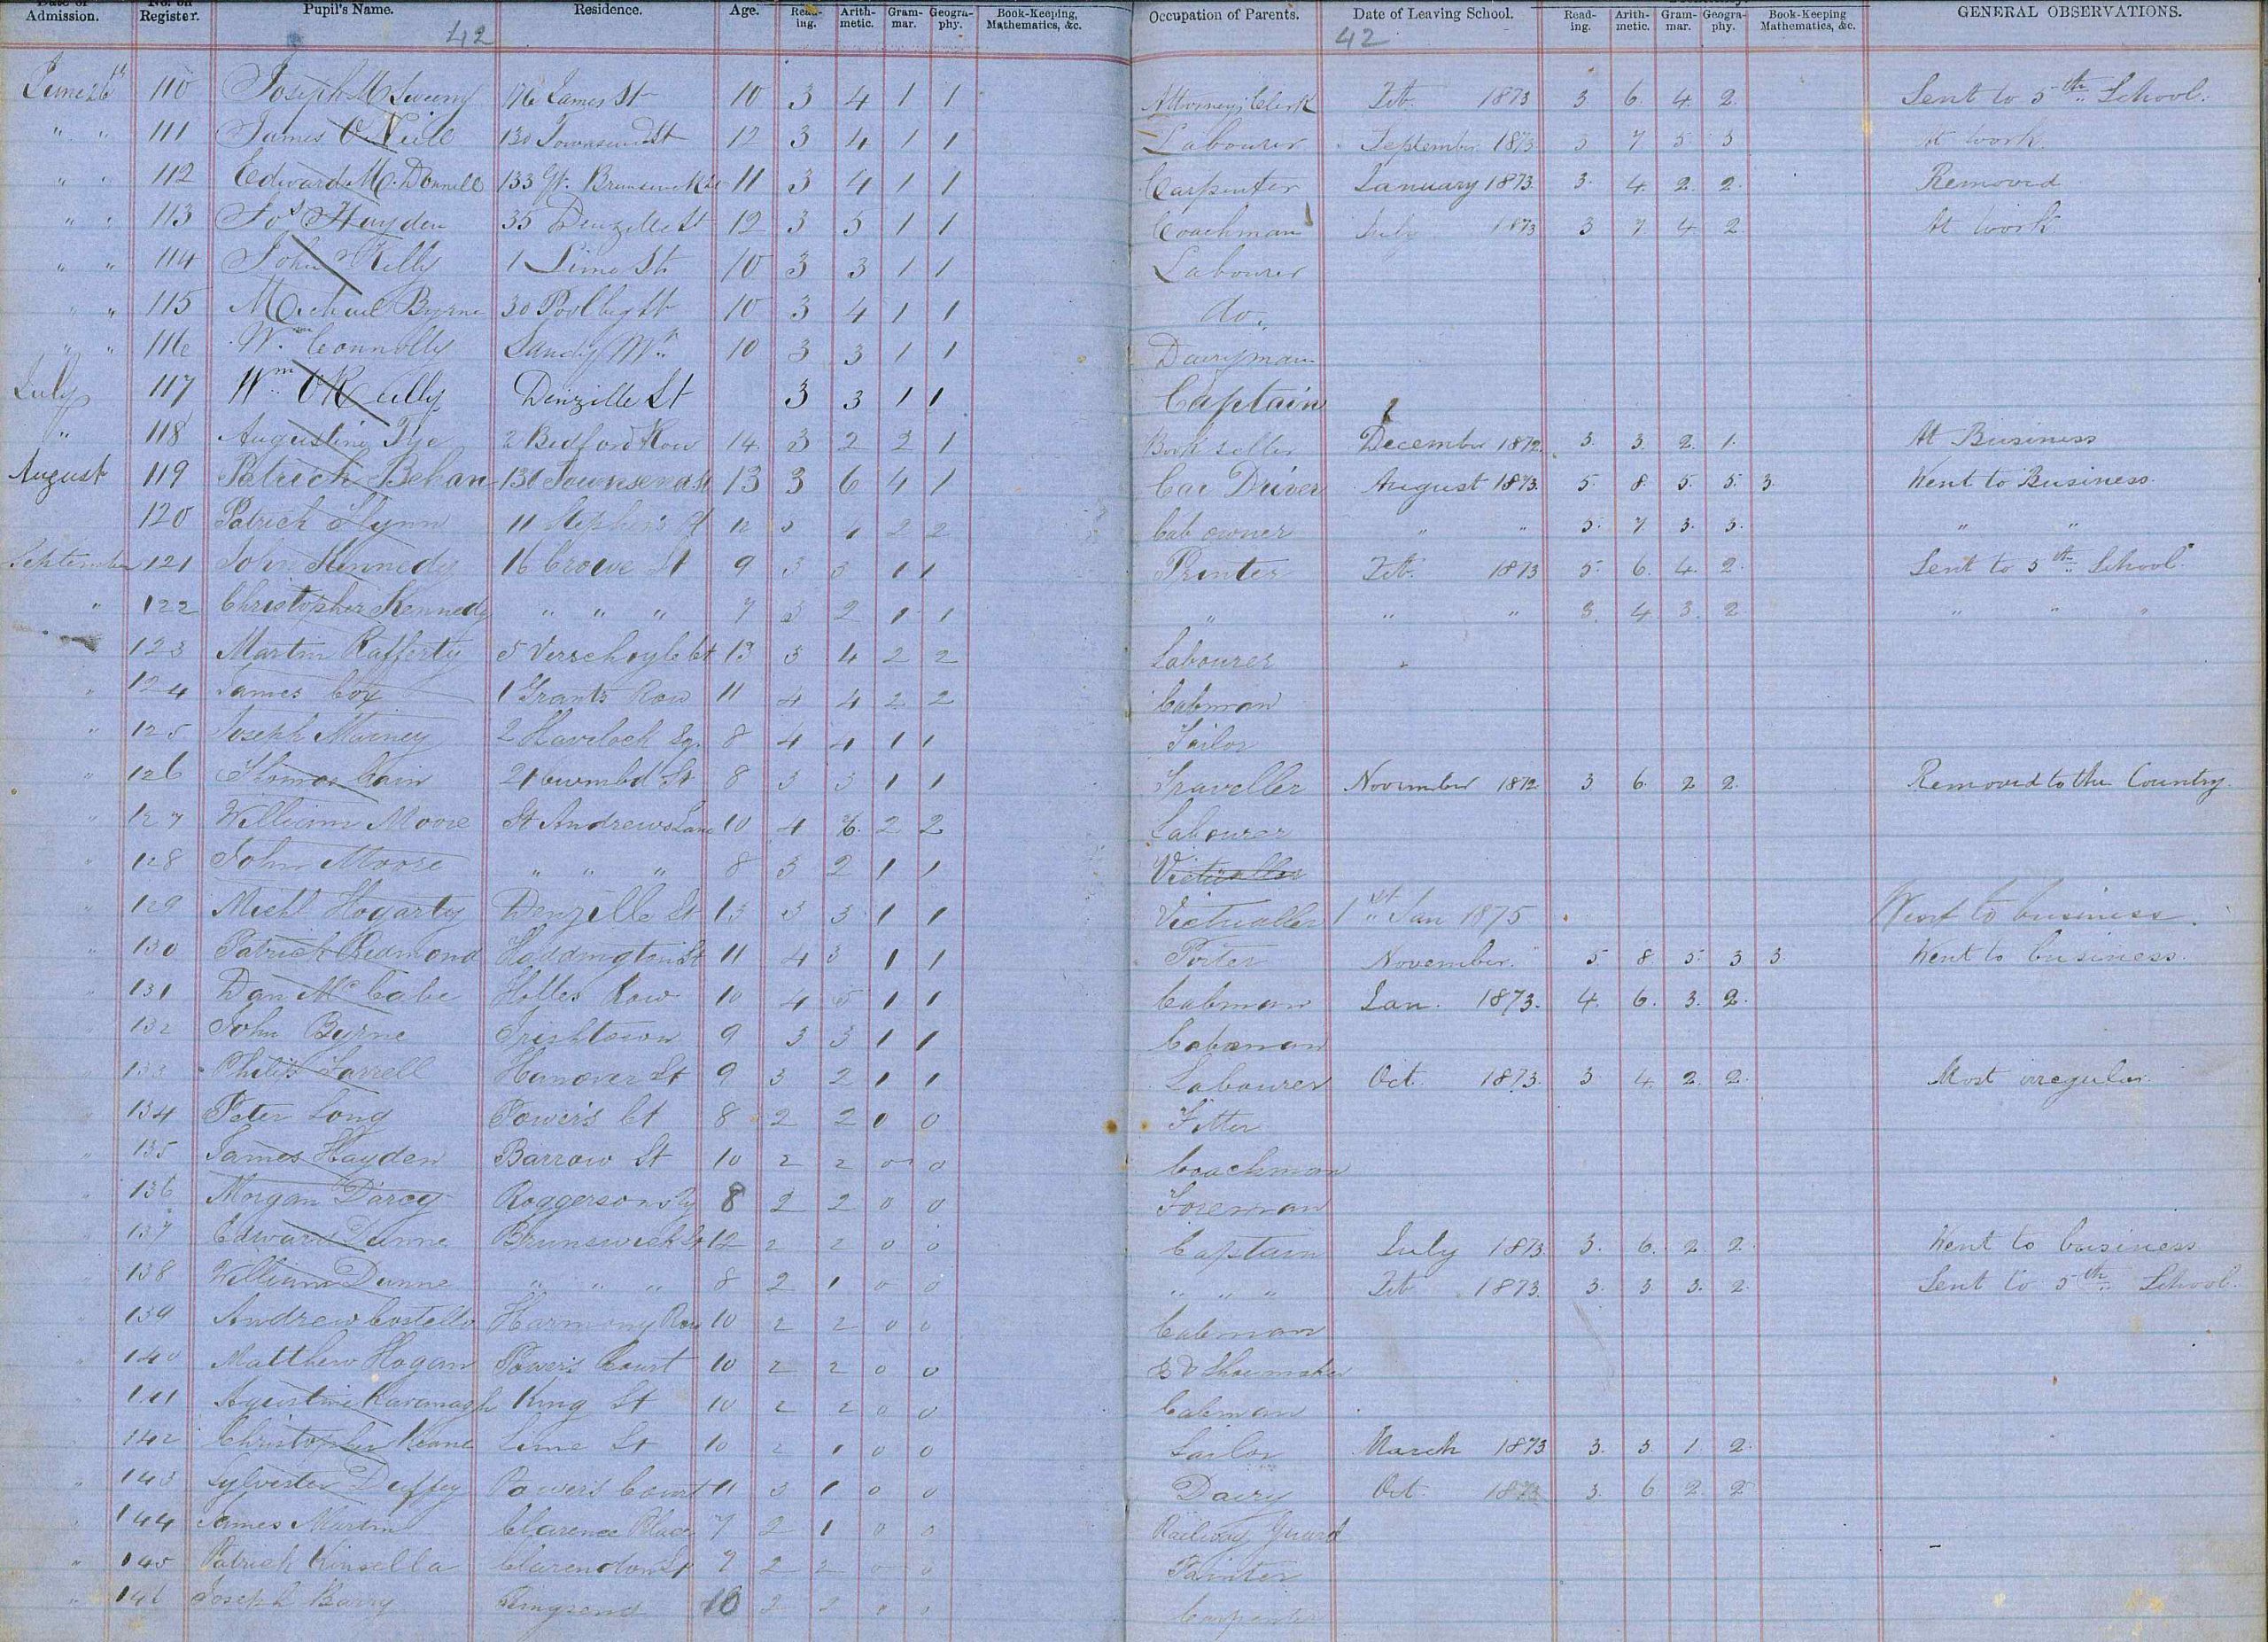 Admission. Register. Pupil's Name. Residence. Age. Read-ing. Arith-metic. Gram-mar. Geogra-phy. Book-Keeping, Mathematics, &c. Occupation of Parents. Date of Leaving School. Read-ing. Arith-metic. Gram-mar. Geogra-phy. Book-Keeping Mathematics, &c. GENERAL OBSERVATIONS.
42 42
June 26th 110 Joseph McSweeny 176 James St 10 3 4 1 1 Attorney's Clerk Feb. 1873 3 6. 4. 2. Sent to 5th School.
" " 111 James O'Neill 130 Townsend St 12 3 4 1 1 Labourer September 1873 3 7 5 3 At work.
" " 112 Edward McDonnell 133 Gt. Brunswick St 11 3 4 1 1 Carpenter January 1873 3. 4. 2. 2. Removed
" " 113 Jos Hayden 35 Denzille St 12 3 5 1 1 Coachman July 1873 3 7 4 2 At work
" " 114 John Kelly 1 Lime St 10 3 3 1 1 Labourer
" " 115 Michael Byrne 30 Poolbeg St 10 3 4 1 1 do.
" " 116 Wm Connolly Sandy Mt. 10 3 3 1 1 Dairyman
July 117 Wm O'Reilly Denzille St 3 3 1 1 Captain
" 118 Augustine Tye 2 Bedford Row 14. 3 2 2 1 Book seller December 1872. 3. 3. 2. 1. At Business
August 119 Patrick Behan 130 Townsend St 13 3 6 4 1 Car Driver August 1873. 5. 8. 5. 5. 3. Went to Business.
120 Patrick Flynn 11 Stephen's 12 1 2 2 Cab owner " " 5. 7 3. 3. " "
September 121 John Kennedy 16 Crowe St 9 3 3 1 1 Printer Feb. 1873 5. 6. 4. 2. Sent to 5th School.
" 122 Christopher Kennedy " " " 7 3 2 1 1 " " " 3. 4. 3. 2 " " "
123 Martin Rafferty 5 Verschoyle Ct 13 3 4 2 2 Labourer
" 124 James Coy 1 Grants Row 11 4 4 2 2 Cabman
" 125 Joseph Mainey 2 Havelock Sq. 8 4 4 1 1 Tailor
" 126 Thomas Cain 21 St 8 3 3 1 1 Traveller November 1872 3. 6. 2 2. Removed to the Country.
" 127 William Moore St Andrews Lane 10 4 6. 2 2 Labourer
" 128 John Moore " " " 8 3 2 1 1 Victualler
" 129 Michl Hogarty Denzille St 13 3 3 1 1 Victualler 1st Jan 1875 Went to business.
" 130 Patrick Redmond Haddington St 11 4 3 1 1 Porter November. 5. 8. 5. 3 3. Went to business.
" 131 Dan McCabe Holles Row 10 4 5 1 1 Cabman Jan. 1873. 4. 6. 3. 2.
" 132 John Byrne Irishtown 9 3 3 1 1 Cabman
" 133 Philip Farrell Hanover St 9 3 2 1 1 Labourer Oct. 1873. 3 4 2. 2. Most irregular.
" 134 Peter Long Power's Ct 8 2 2 0 0 Fitter
" 135 James Hayden Barrow St 10 2 2 0 0 Coachman
" 136 Morgan Darcy Roggerson Qy 8 2 2 0 0 Foreman
" 137 Edward Dunne Brunswick St 12 2 2 0 0 Captain July 1873 3. 6. 2 2. Went to business
" 138 William Dunne " " " 8 2 1 0 0 " " " Feb 1873. 3. 3. 3. 2. Sent to 5th School.
" 139 Andrew Costello Harmony Row 10 2 2 0 0 Cabman
" 140 Matthew Hogan Power's Court 10 2 2 0 0 Shoemaker
" 141 Agustine Kavanagh King St 10 2 2 0 0 Cabman
142 Christopher Keane Lime St 10 2 1 0 0 Sailor March 1873 3. 3. 1 2.
" 143 Sylvester Duffey Power's Court 11 3 1 0 0 Dairy Oct. 1873 3. 6 2. 2
" 144 James Martin Clarence Place 7 2 1 0 0 Railway Guard
" 145 Patrick Kinsella Clarendon St 7 2 2 0 0 Painter
" 146 Joseph Barry Ringsend 10 2 2 Carpenter